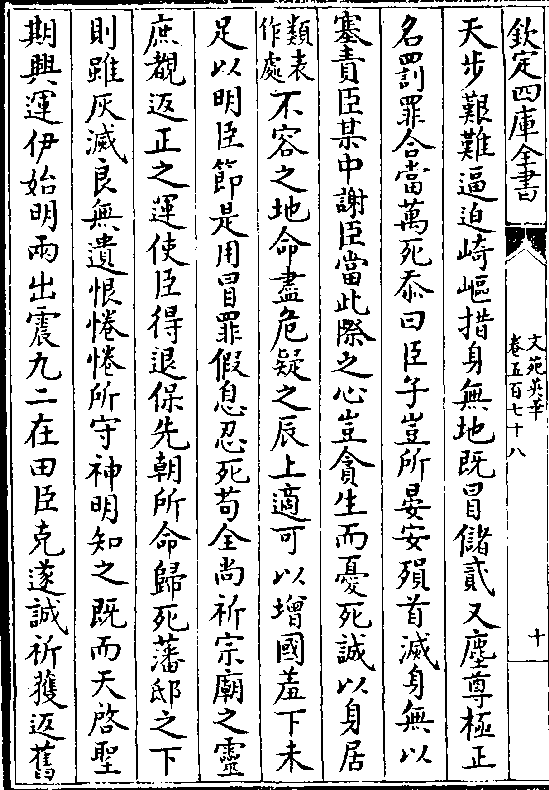 欽定四庫全書
文苑英華
卷五百七十八
十
天步艱難逼迫崎嶇措身無地既冒儲貳又塵尊極正
名罰罪合當萬死忝曰臣子豈所晏安殞首滅身無以
塞責臣某中謝臣當此際之心豈貪生而憂死誠以身居
類表
作處不容之地命盡危疑之辰上適可以增國羞下未
足以明臣節是用冒罪假息忍死苟全尚祈宗廟之靈
庶覩返正之運使臣得退保先朝所命歸死藩邸之下
則雖灰滅良無遺恨惓惓所守神明知之既而天啓聖
期興運伊始明兩出震九二在田臣克遂誠祈獲返舊